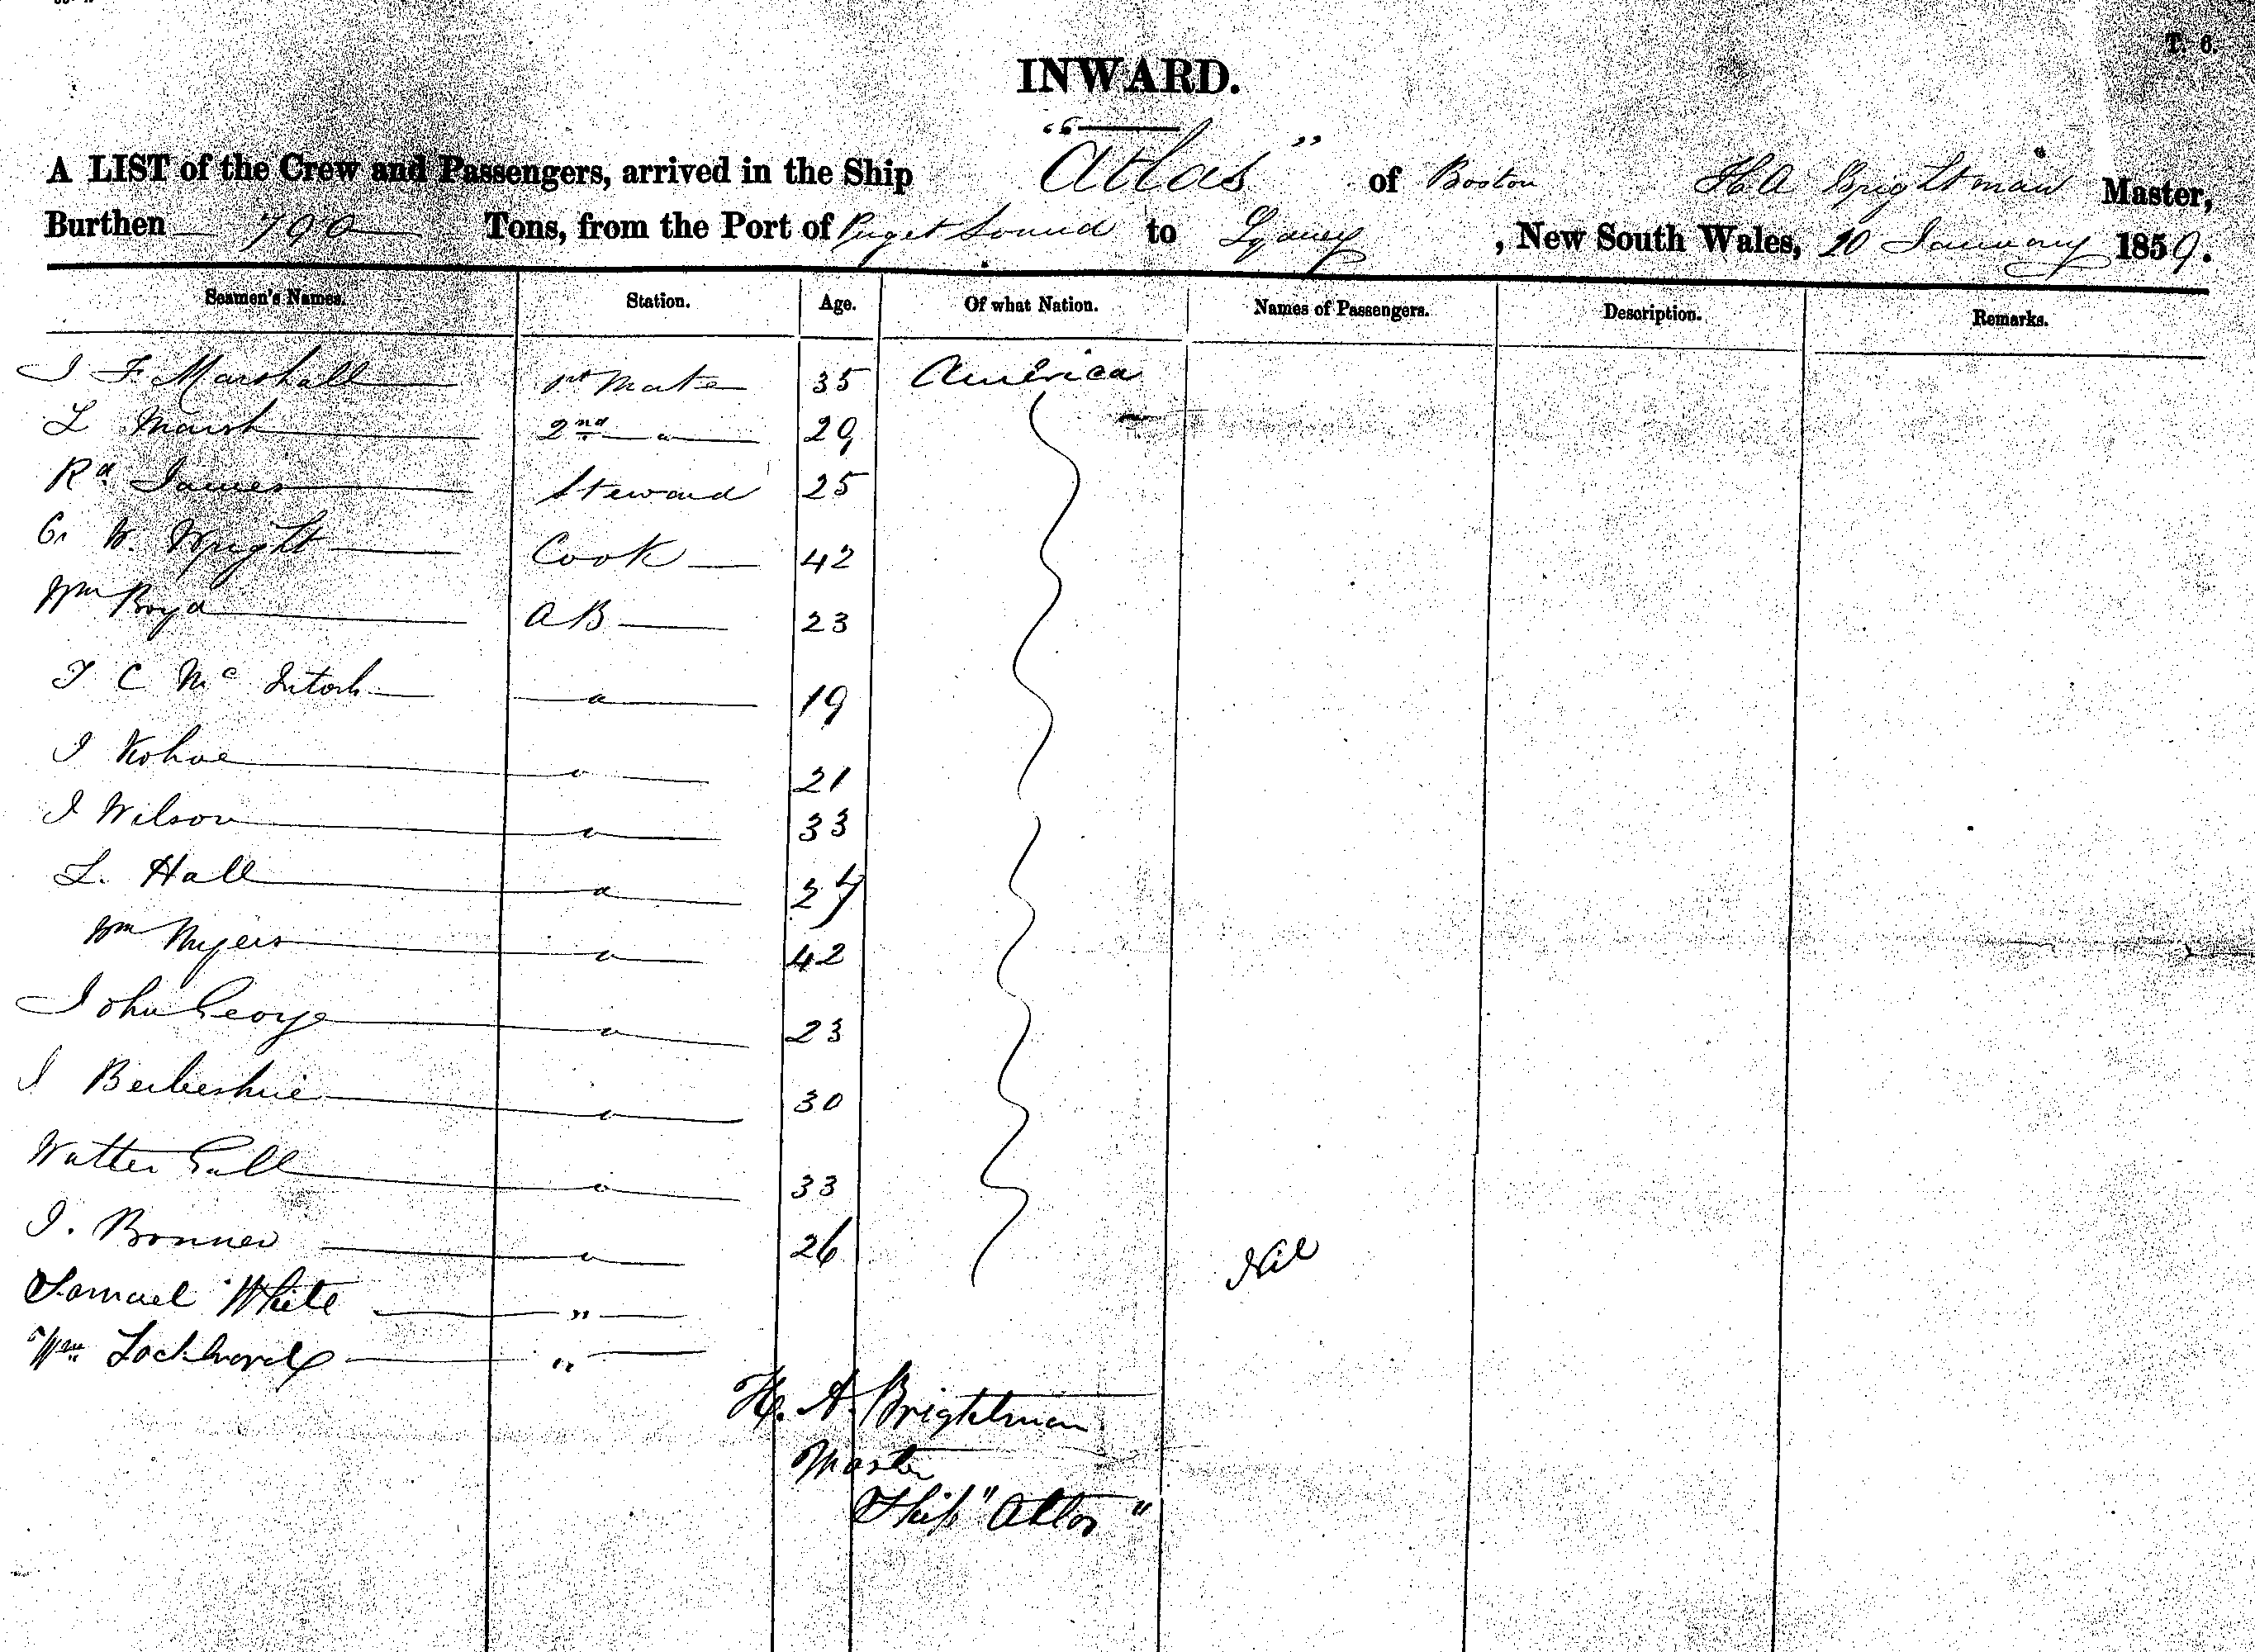 T. 6.
INWARD.
A LIST of the Crew and Passengers, arrived in the Ship "Atlas" of Boston H A Brightman Master,
Burthen 790 Tons, from the Port of Puget Sound to Sydney, New South Wales, 20 January 1859.
Seamen's Names. Station. Age. Of what Nation. Names of Passengers. Description. Remarks.
J F Marshall 1st Mate 35 America
L Marsh 2nd " 29
Rd. James Steward 25
G W. Wright Cook 42
Wm Boyd AB 23
J C Mc Intosh " 19
J Kohoe " 21
J Wilson " 33
L. Hall " 27
Wm Myers " 42
John George " 23
J " 30
Walter Gall " 33
J. Bonner " 26 Nil
Samuel White "
Wm Lockward "
H. A. Brightman
Master
Ship "Atlas"